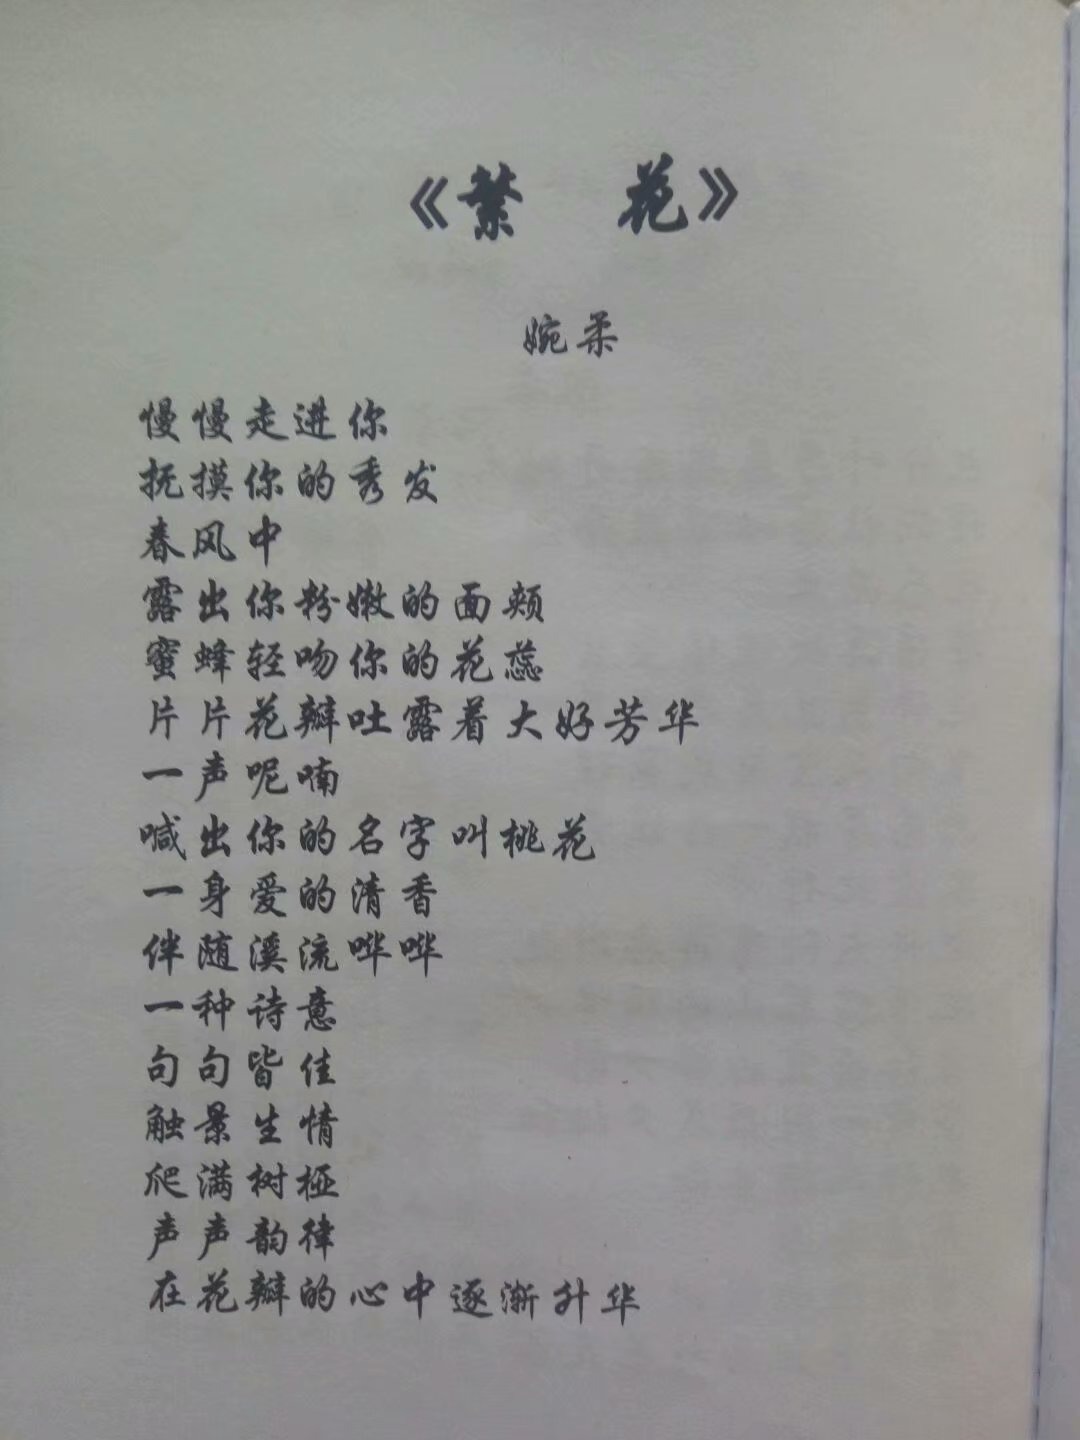 《繁 花》
婉柔
慢慢走进你
抚摸你的秀发
春风中
露出你粉嫩的面颊
蜜蜂轻吻你的花蕊
片片花瓣吐露着大好芳华
一声呢喃
喊出你的名字叫桃花
一身爱的清香
伴随溪流哗哗
一种诗意
句句皆佳
触景生情
爬满树桠
声声韵律
在花瓣的心中逐渐升华